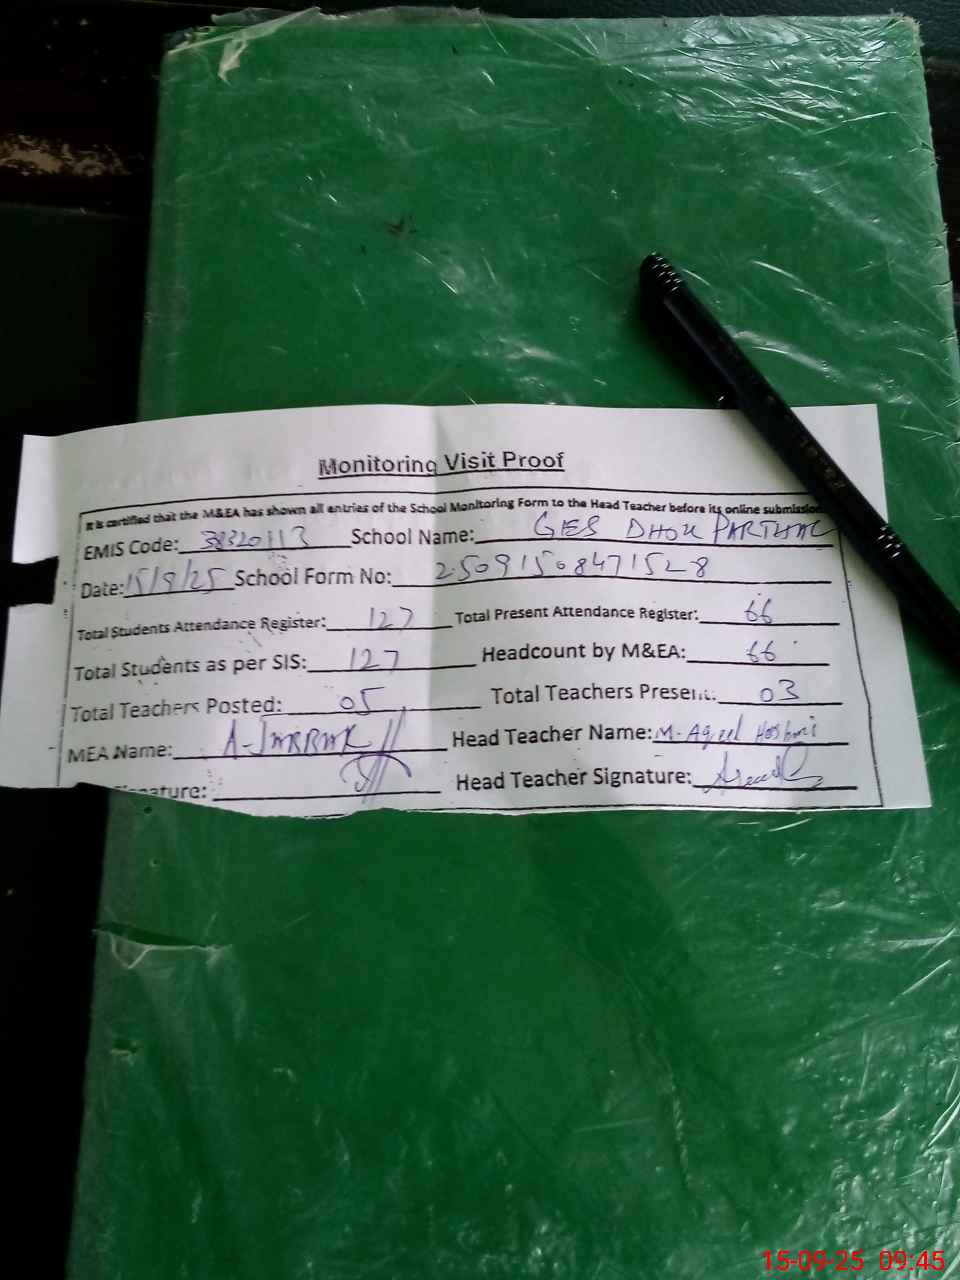 Monitoring Visit Proof
It is certified that the M&EA has shown all entries of the School Monitoring Form to the Head Teacher before its online submission
EMIS Code: 38320113 School Name: GES DHOK
Date: 15/9/25 School Form No: 25091508471528
Total Students Attendance Register: 127 Total Present Attendance Register: 66
Total Students as per SIS: 127 Headcount by M&EA: 66
Total Teachers Posted: 05 Total Teachers Present: 03
MEA Name: Head Teacher Name: M. Aqeel Hashmi
Head Teacher Signature:
15-09-25 09:45